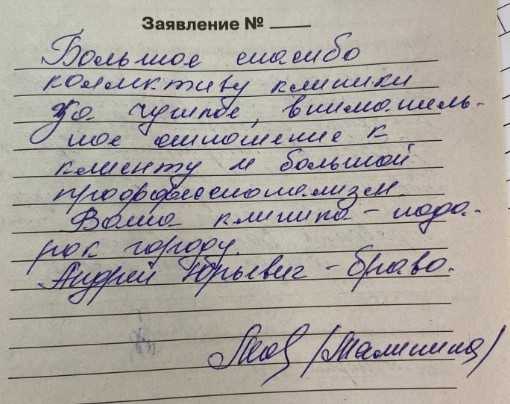 Заявление № ____
Большое спасибо
коллективу клиники
За чуткое, вниматель-
ное отношение к
клиенту и большой
профессионализм
Ваша клиника - пода-
рок городу.
Андрей Юрьевич - браво.
(Малинина)